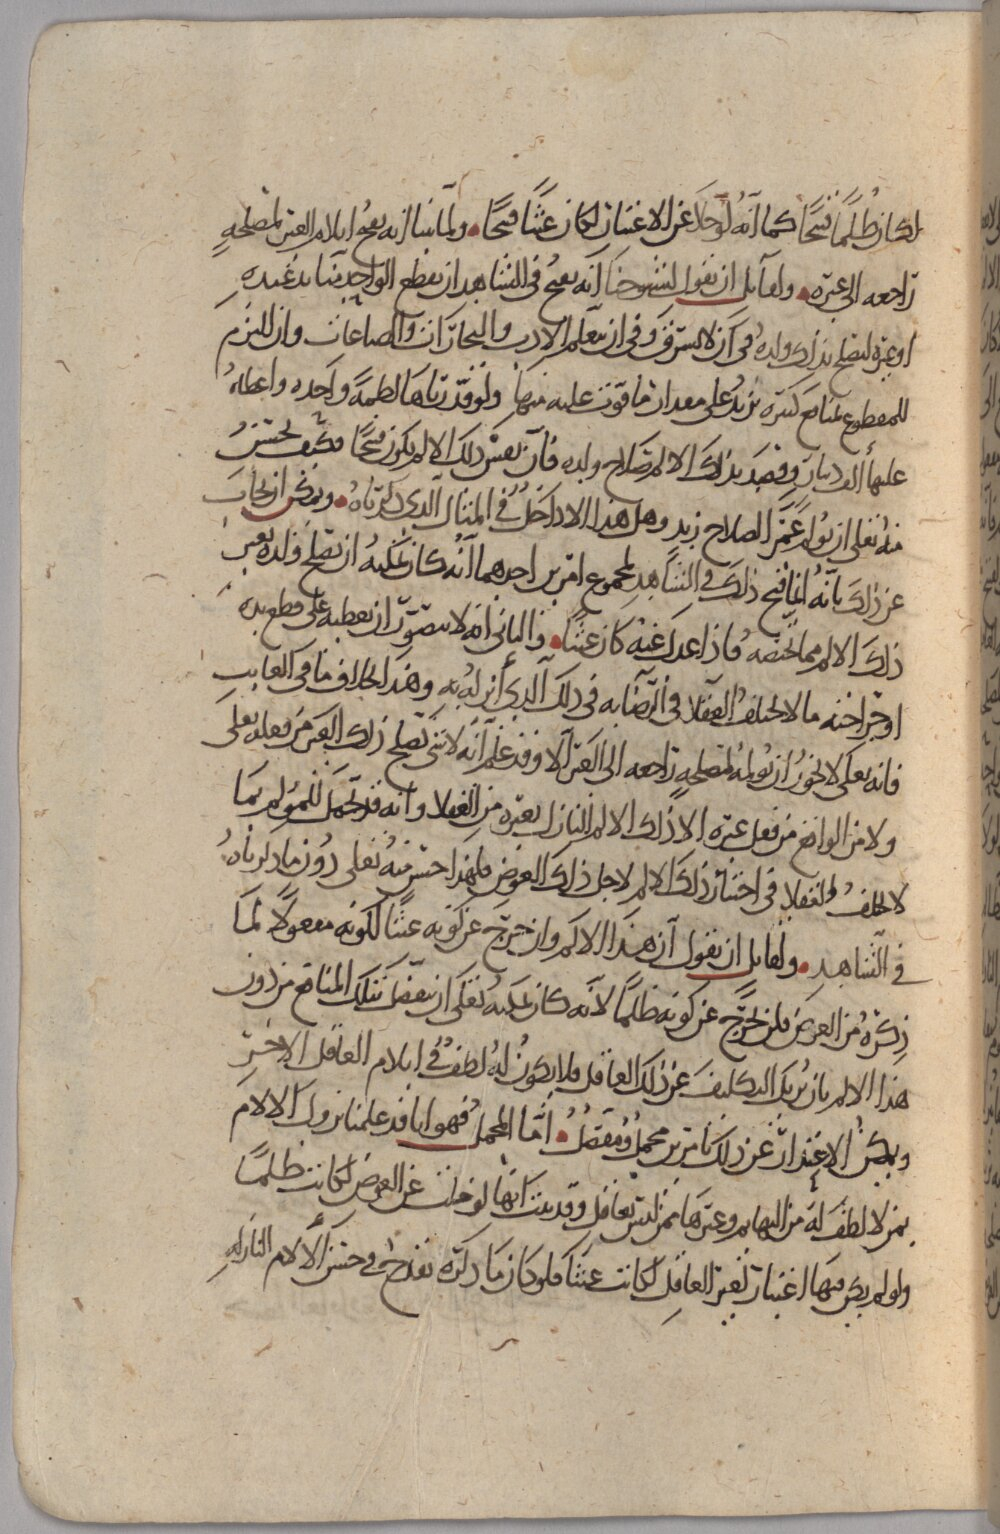 لكان ظلما قبيحا كما أنه لو خلا عن الاعتبار لكان عبثا قبيحا • ولما بينا انه يقبح ايلام الغير لمصلحةٍ
راجعه الى غيره • ولقايل ان يقول لشيوخنا انه يقبح في الشاهد ان يقطع الواحد منا يد عبده
او غيره ليصلح بذلك ولده في ان لا يسرق وفي ان يتعلم الادب والتجارات والصناعات وان التزم
للمقطوع لمنافع كثيره يزيد على مقدار ما فوت عليه منها ولو قدرناها لطمة واحده واعطاهُ
عليها ألف دينار وقصد بذلك الالم صلاح ولده فان نفس ذلك الالم يكون قبيحا فكيف يحسن
منه تعلى ان يؤلم عمرا لصلاح زيد وهل هذا الا داخلٌ في المثال الذي ذكرناهُ • ويمكن ان يجاب
عن ذلك بأنّهُ انما قبح ذلك في الشاهد لمجموع امرين احدهما أنه كان يمكنهُ ان يصلح ولده بغير
ذلك الالم مما يخصه فاذا عدل عنه كان عبثا • والثاني انه لا يتصور ان يعطيه على قطع يده
او جراحته ما لا يختلف العقلا في الرضا به في ذلك الذي أنزله به وهذا بخلاف ما في الغايب
فانه تعلى لا يجوز ان يؤلمه لمصلحةٍ راجعه الى الغير الا وقد علم انه لا شي يصلح ذلك الغير من فعله تعلى
ولا من الواقع من فعل غيره الا ذلك الالم النازل بغيره من العقلا وأنه قد تحمل للمؤلم بما
لا يختلف العقلا في اختيار ذلك الالم لاجل ذلك العوض فلهذا حسن منه تعلى دون ما ذكرناهُ
في الشاهد • ولقايل ان يقول ان هذا الالم وان خرج عن كونه عبثا لكونه مفعولا لما
ذكرهُ من الغرض فلن يخرج عن كونه ظلما لأنه كان يمكنه تعلى ان يتفضل بتلك المنافع من دون
هذا الالم بان يزيل التكليف عن ذلك العاقل فلا يكون له لطفٌ في ايلام العاقل الاخر
ويمكن الاعتذار عن ذلك بامرين مجملٌ ومفصلٌ • أما المجملُ فهو انا قد علمنا نزول الالام
بمن لا لطف له من البهايم وغيرها ممن ليس بعاقل وقد بينا انها لو خلت عن العوض لكانت ظلما
ولو لم يكن فيها اعتبار لغير العاقل لكانت عبثا فلو كان ما ذكره يقدح في حسن ألالام النازله